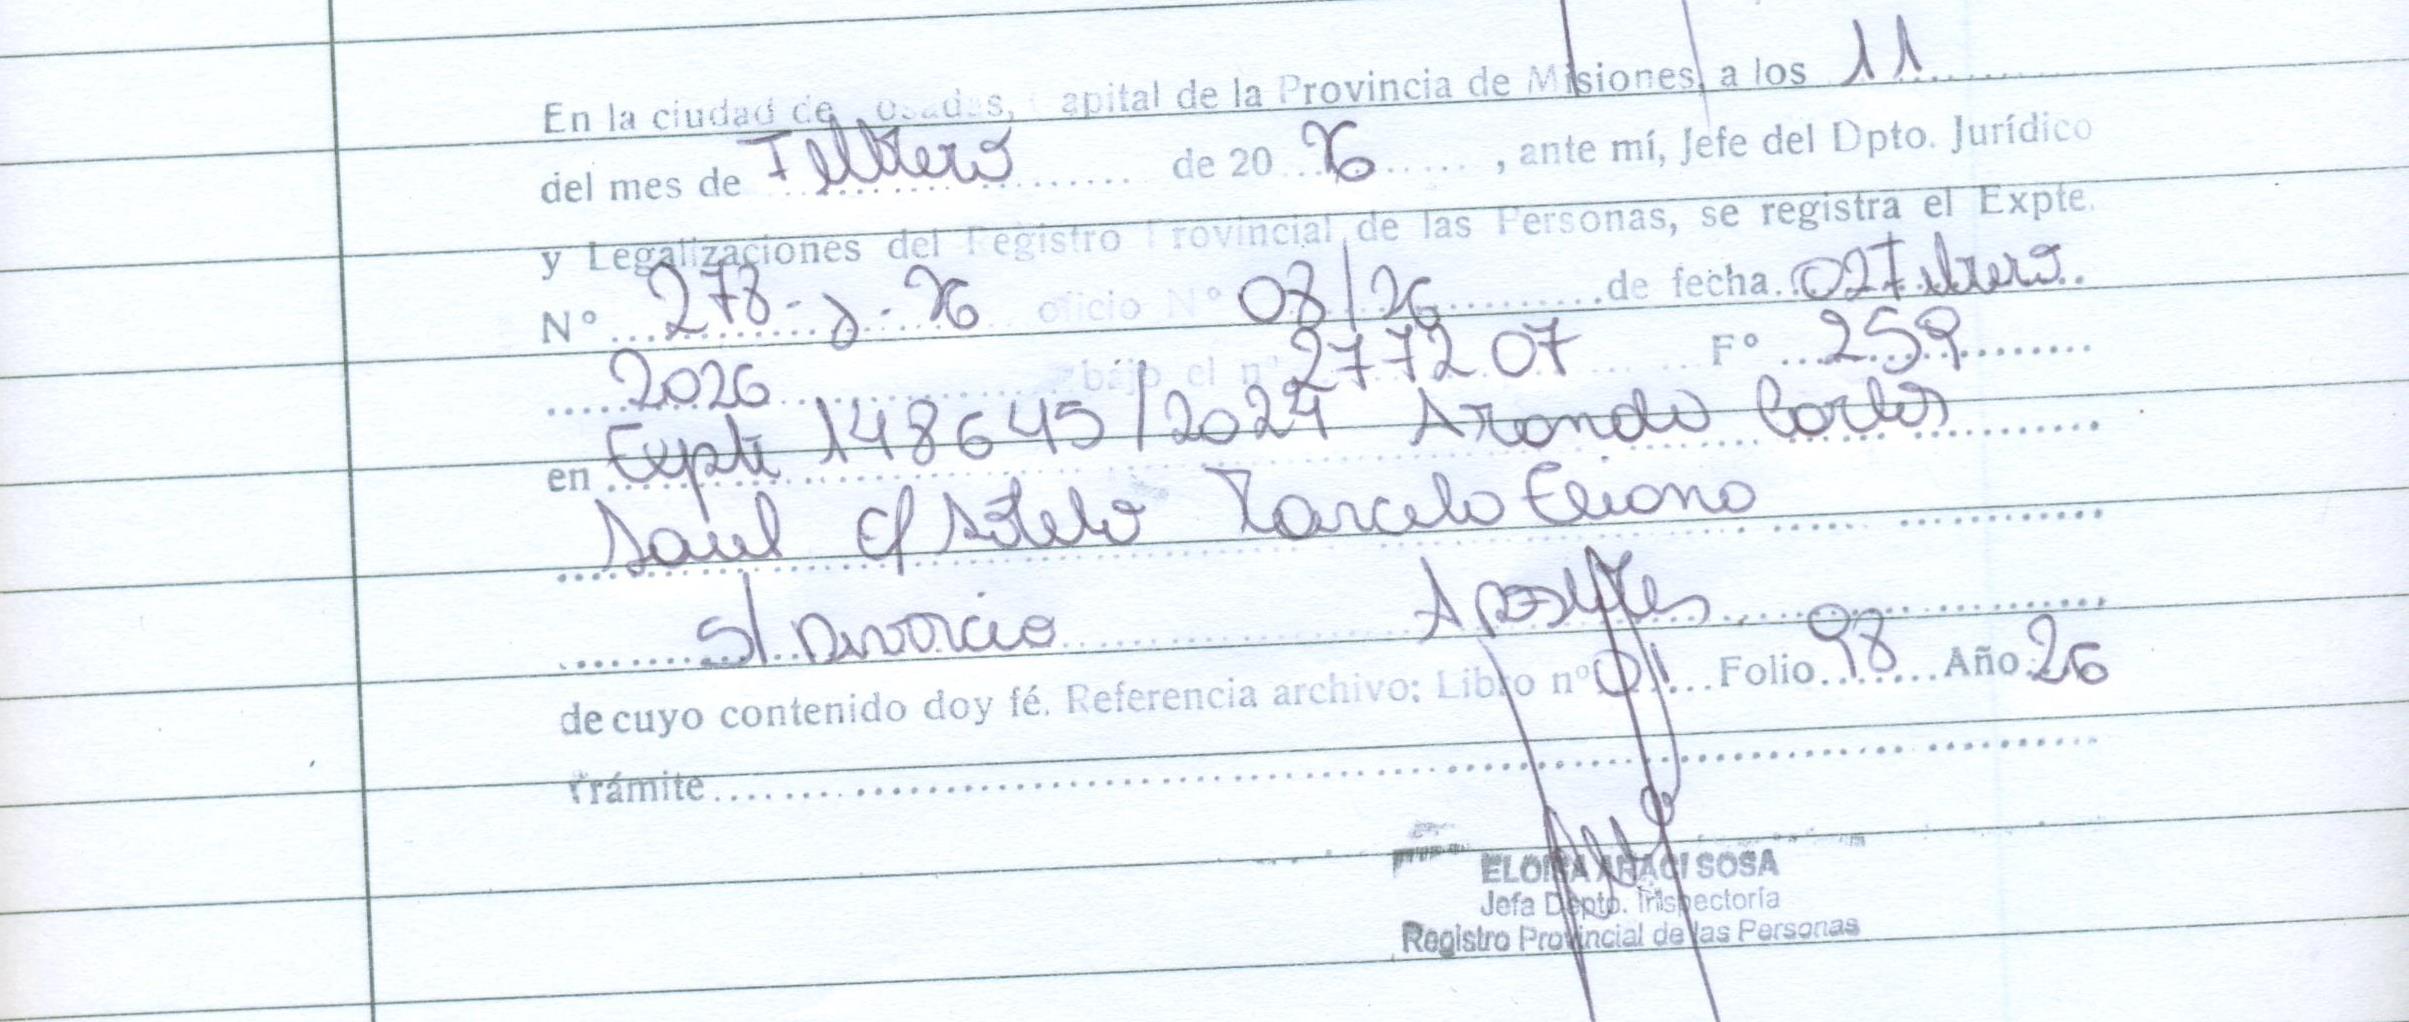 En la ciudad de Posadas, Capital de la Provincia de Misiones, a los 11
del mes de Febrero de 20 26 , ante mí, Jefe del Dpto. Jurídico
y Legalizaciones del Registro Provincial de las Personas, se registra el Expte.
N° 278-J-26 oficio N° 08/26 de fecha 02 Febrero
2026 bajo el n° 277207 F° 259
en Expte 148645/2024 Arondo Carlos
Saul c/ Sotelo Marcela Eliana
s/ Divorcio Apostoles
de cuyo contenido doy fé. Referencia archivo: Libro n° 01 Folio 98 Año 26
Trámite
ELOISA ARACI SOSA
Jefa Depto. Inspectoría
Registro Provincial de las Personas